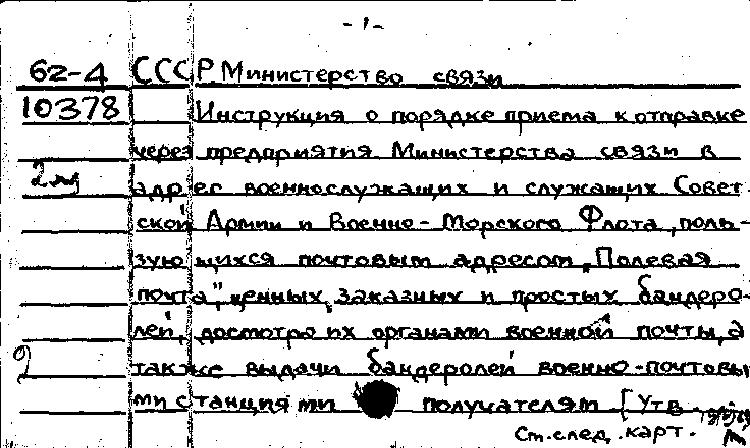 -1-
62-4 СССР. Министерство связи
10378 Инструкция о порядке приема к отправке
через предприятия Министерства связи в
адрес военнослужащих и служащих Совет-
ской Армии и Военно-Морского Флота, поль-
зующихся почтовым адресом „Полевая
почта", ценных, заказных и простых бандеро-
лей, досмотра их органами военной почты, а
также выдачи бандеролей военно-почтовы
ми станциями получателям [Утв
См. след. карт.